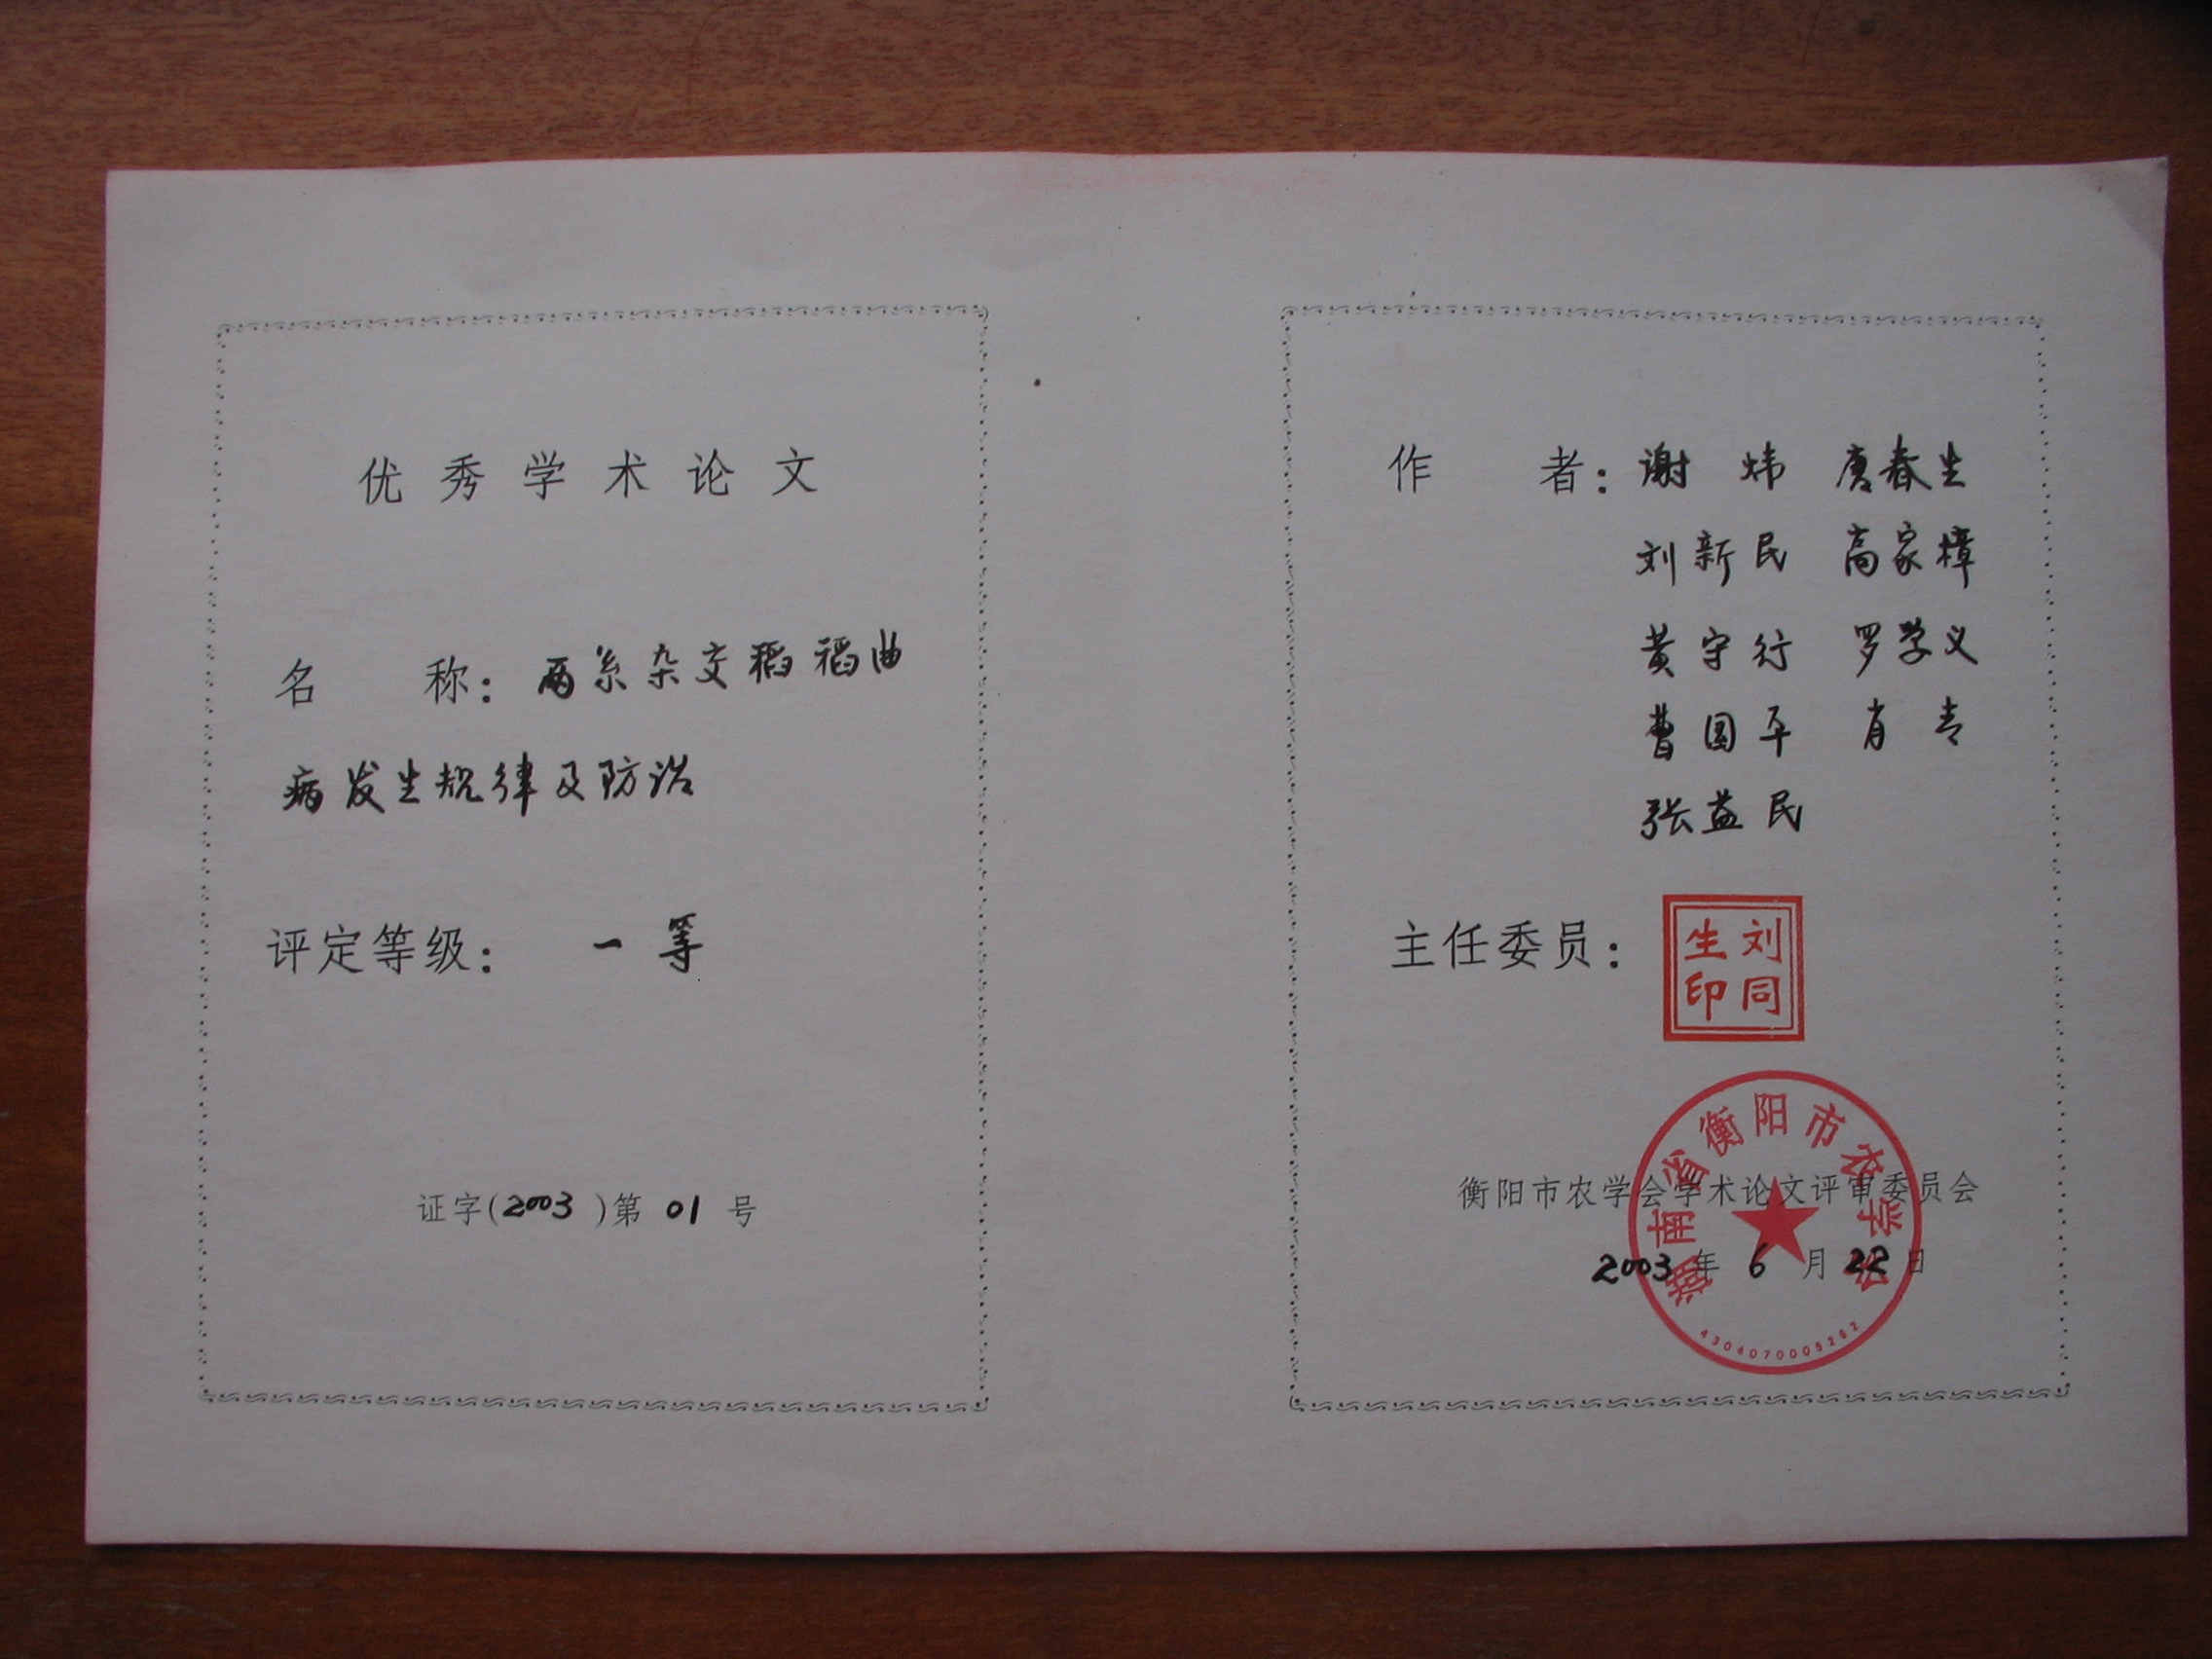 优秀学术论文
名 称: 两系杂交稻稻曲
病发生规律及防治
评定等级: 一等
证字(2003)第 01 号
作 者: 谢 炜 唐春生
刘新民 高家樟
黄守行 罗学义
曹国平 肖 专
张益民
主任委员:
刘同生印
湖南省衡阳市农学会
衡阳市农学会学术论文评审委员会
2003 年 6 月 22 日
4304070005262